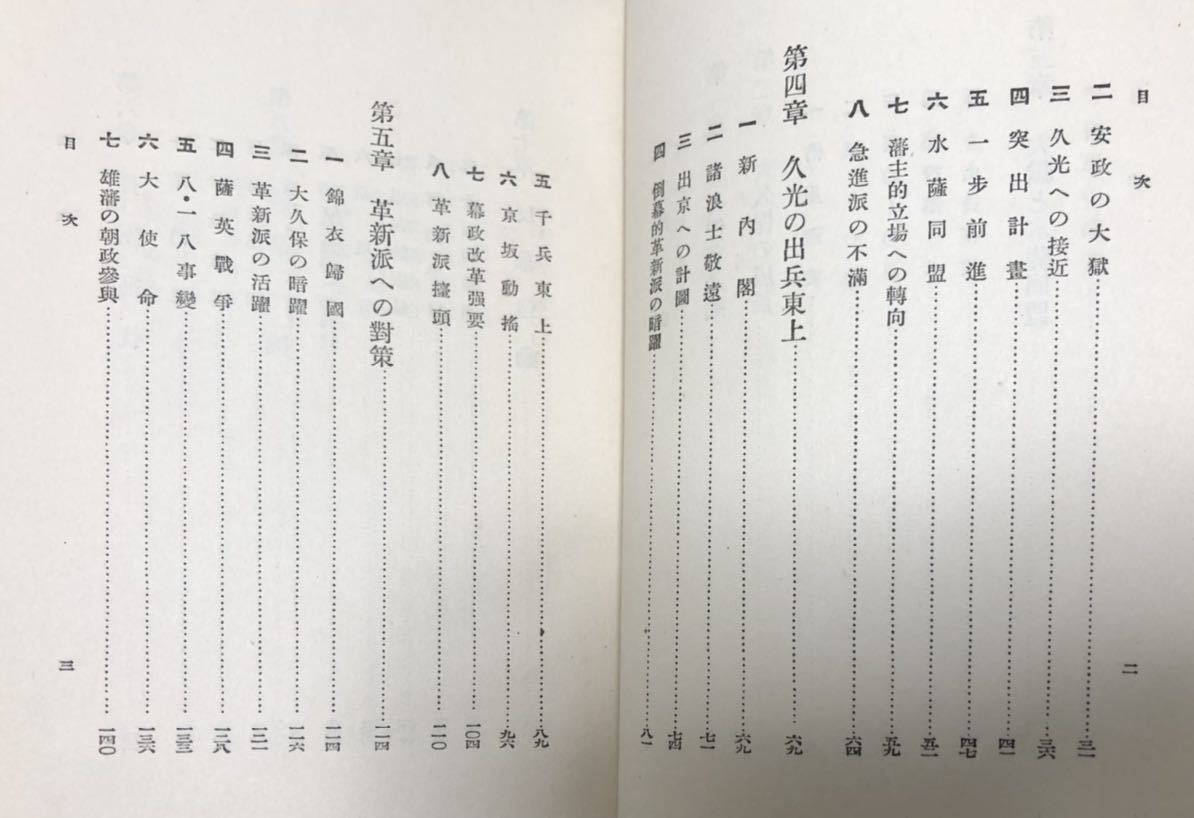 目次
二 安政の大獄……三一
三 久光への接近……三六
四 突出計畫……四一
五 一步前進……四七
六 水薩同盟……五二
七 藩主的立場への轉向……五九
八 急進派の不滿……六四
第四章 久光の出兵東上……六九
一 新內閣……六九
二 諸浪士敬遠……七一
三 出京への計圖……七四
四 倒幕的革新派の暗躍……八一
二
五 千兵東上……八九
六 京坂動搖……九六
七 幕政改革强要……一〇四
八 革新派擡頭……一一〇
第五章 革新派への對策……一一四
一 錦衣歸國……一一四
二 大久保の暗躍……一一六
三 革新派の活躍……一二一
四 薩英戰爭……一二八
五 八・一八事變……一三三
六 大使命……一三六
七 雄藩の朝政參與……一四〇
目次
三